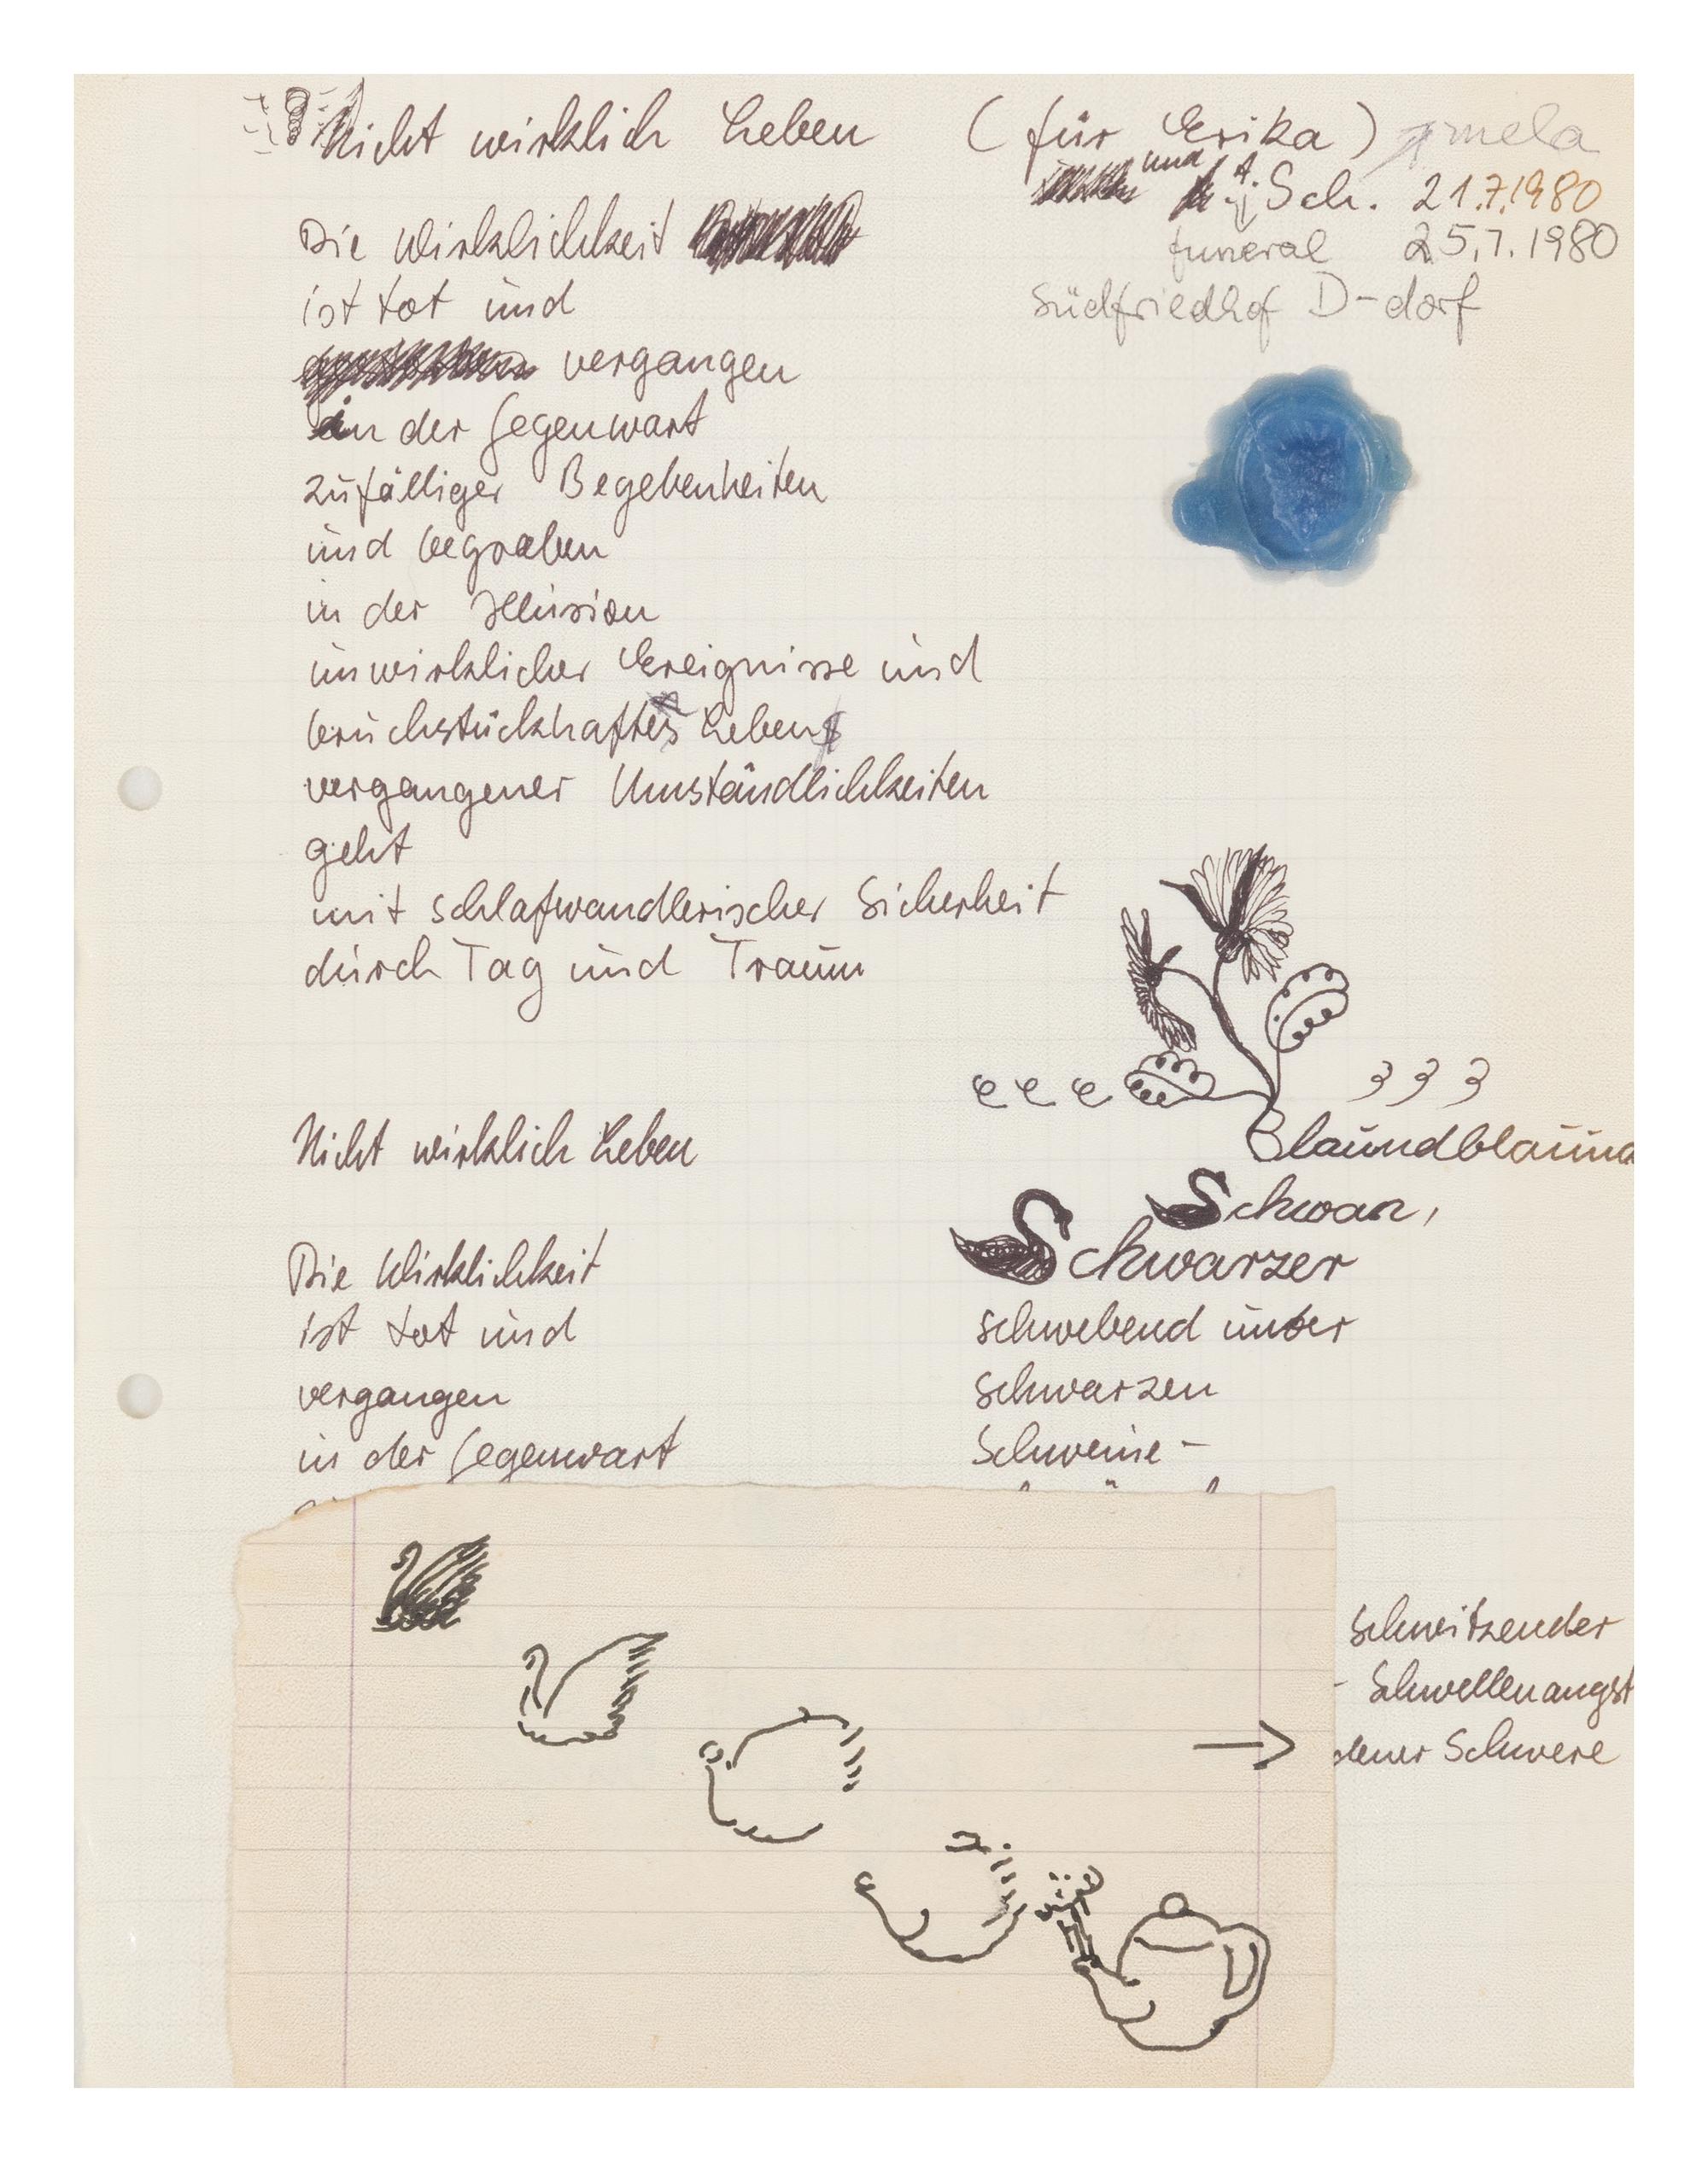 Nicht wirklich Leben (für Erika)
und A. Sch. 21.7.1980
funeral 25.7.1980
Südfriedhof D-dorf
Die Wirklichkeit
ist tot und
vergangen
in der Gegenwart
zufälliger Begebenheiten
und begraben
in der Illusion
unwirklicher Ereignisse und
bruchstückhaftes Leben
vergangener Umständlichkeiten
geht
mit schlafwandlerischer Sicherheit
durch Tag und Traum
Nicht wirklich Leben
Die Wirklichkeit
ist tot und
vergangen
in der Gegenwart
Blaundblauund
Schwan,
Schwarzer
schwebend unter
schwarzen
Schweine-
schwitzender
- Schwellenangst
dener Schwere